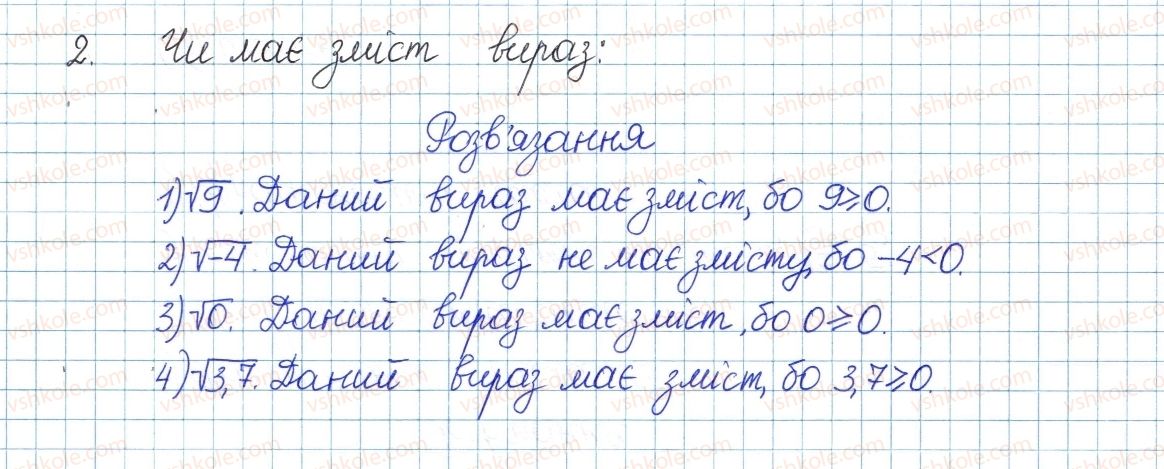 2. Чи має зміст вираз:
Розв'язання
1) √9. Даний вираз має зміст, бо 9⩾0.
2) √-4. Даний вираз не має змісту, бо -4<0.
3) √0. Даний вираз має зміст, бо 0⩾0.
4) √3,7. Даний вираз має зміст, бо 3,7⩾0.
vshkole.com